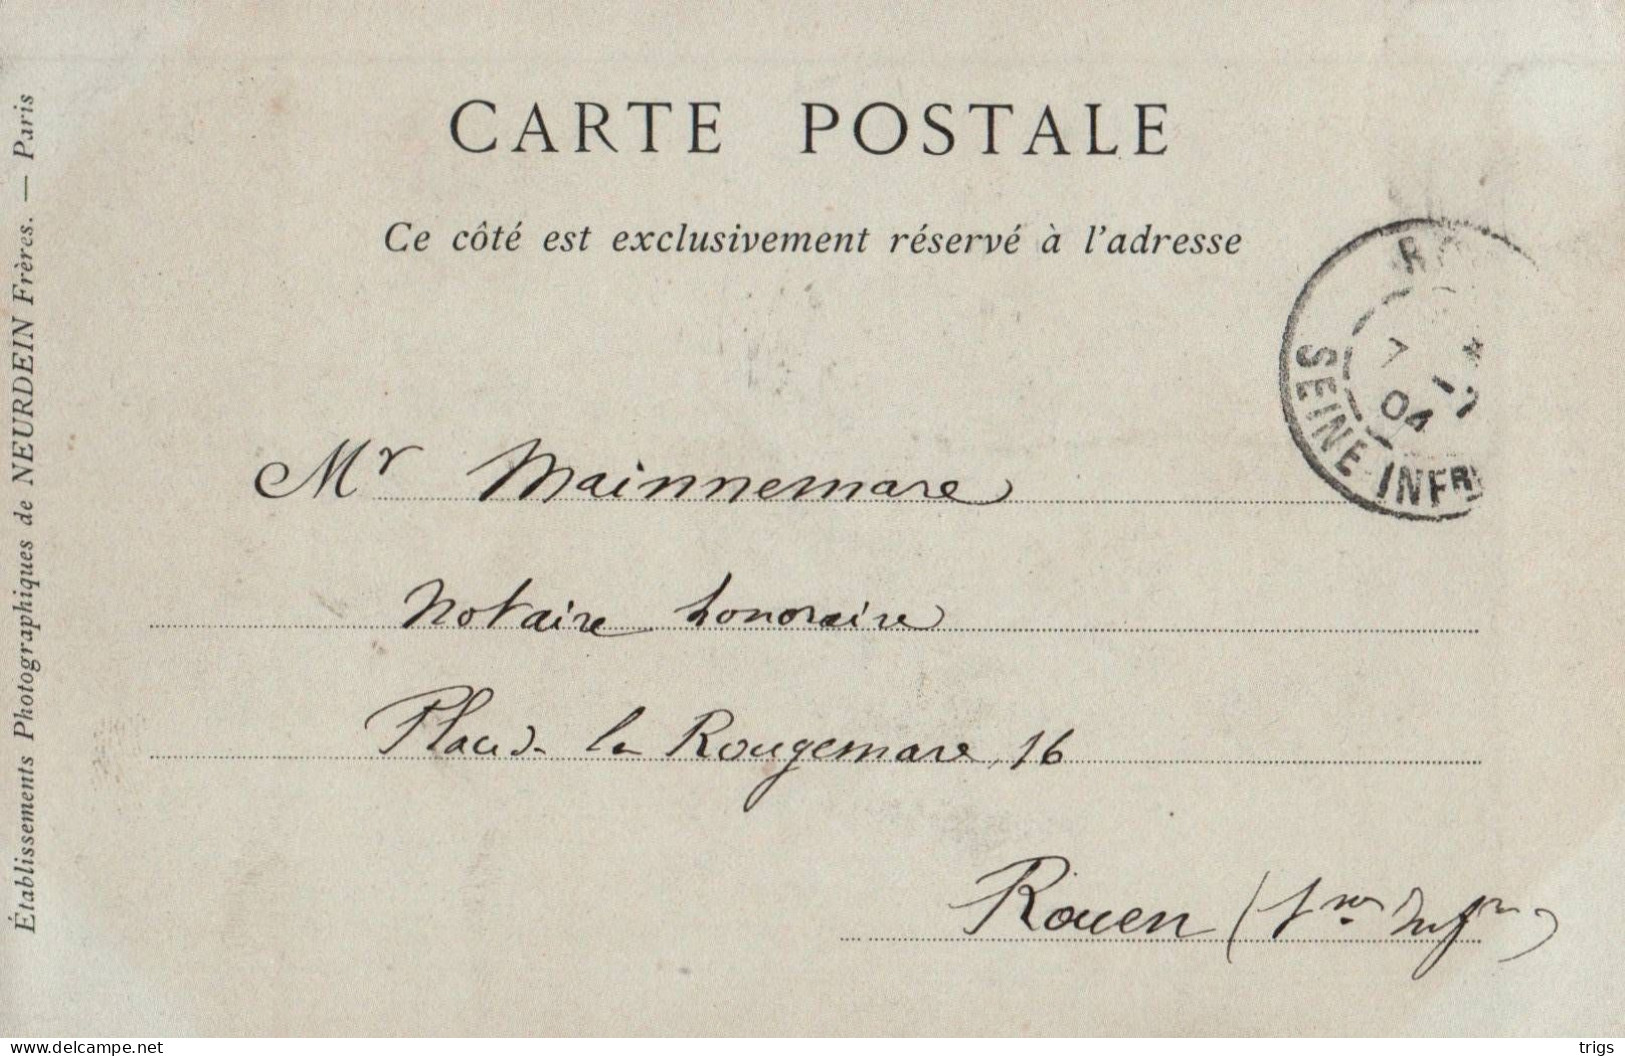 CARTE POSTALE
Ce côté est exclusivement réservé à l'adresse
Établissements Photographiques de NEURDEIN Frères. — Paris
SEINE-INFRE
7
04
Mr Mainnemare
Notaire honoraire
Place de la Rougemare, 16
Rouen (Sne Infre)
www.delcampe.net
trigs